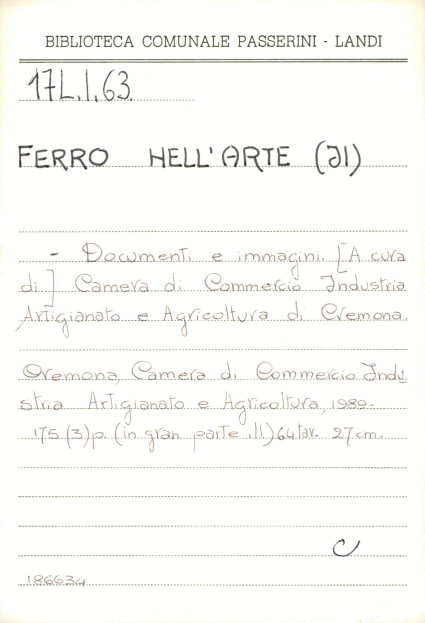 BIBLIOTECA COMUNALE PASSERINI - LANDI
17L.I.63.
FERRO HELL'ARTE (JI)
- Documenti e immagini. [A cura
di] Camera di Commercio Industria
Artigianato e Agricoltura di Cremona.
Cremona, Camera di Commercio Indu
stria Artigianato e Agricoltura, 1989.
175 (3) p. (in gran parte ill.) 64 tav. 27 cm.
C
186634